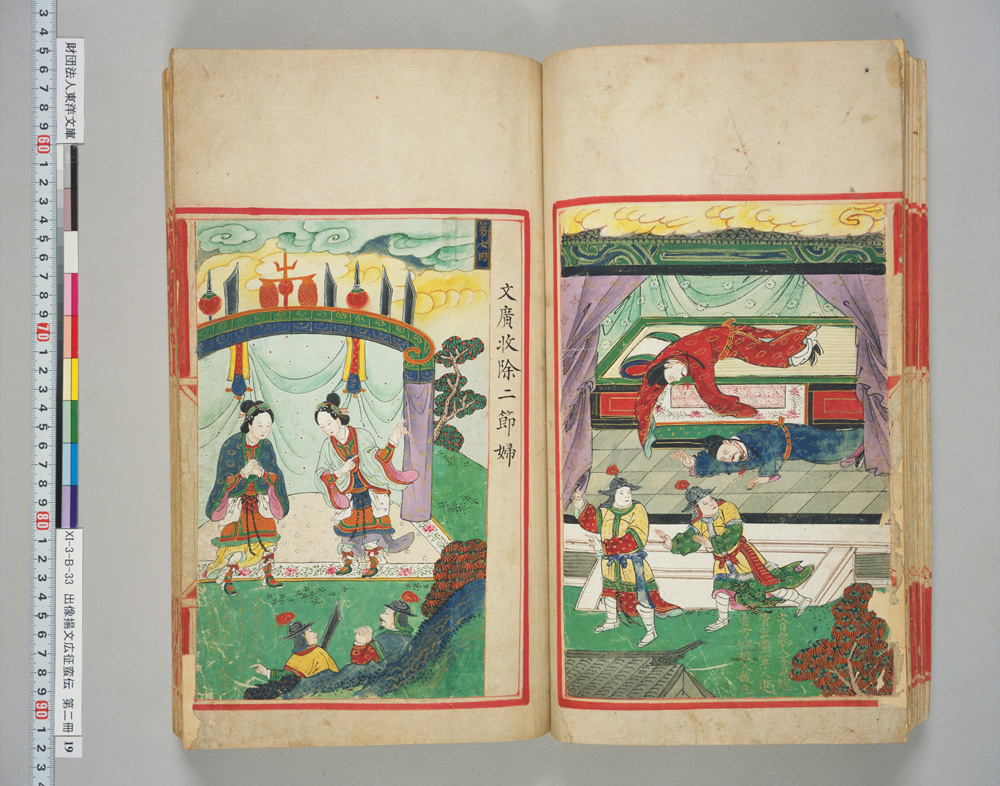 財団法人東洋文庫
XI-3-B-33 出像楊文広征蛮伝 第二冊 19
第七回
文廣收除二節婦
3
4
5
6
7
8
9
60
1
2
3
4
5
6
7
8
9
70
1
2
3
4
5
6
7
8
9
80
1
2
3
4
5
6
7
8
9
90
1
2
3